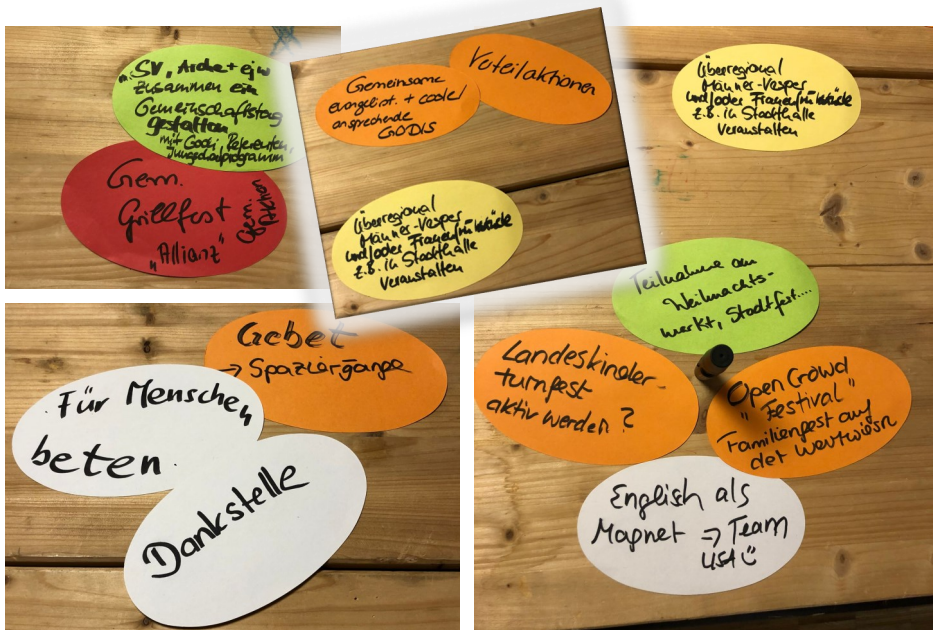 SV, Arche + ejw
zusammen ein
Gemeinschaftstag
gestalten
mit Godi, Referenten,
Jungscharprogramm
Gem.
Grillfest
"Allianz"
Gem.
Aktion
Gemeinsame
evangelist. + coole/
ansprechende
GODIS
Verteilaktionen
Überregional
Männer-Vesper
und/oder Frauenfrühstücke
z.B. in Stadthalle
veranstalten
Überregional
Männer-Vesper
und/oder Frauenfrühstücke
z.B. in Stadthalle
veranstalten
Gebet
→ Spaziergänge
Für Menschen
beten.
Dankstelle
Teilnahme am
Weihnachts-
markt, Stadtfest....
Landeskinder-
turnfest
aktiv werden?
Open Crowd
"Festival"
Familienfest auf
der
English als
Magnet → Team
USA ☺